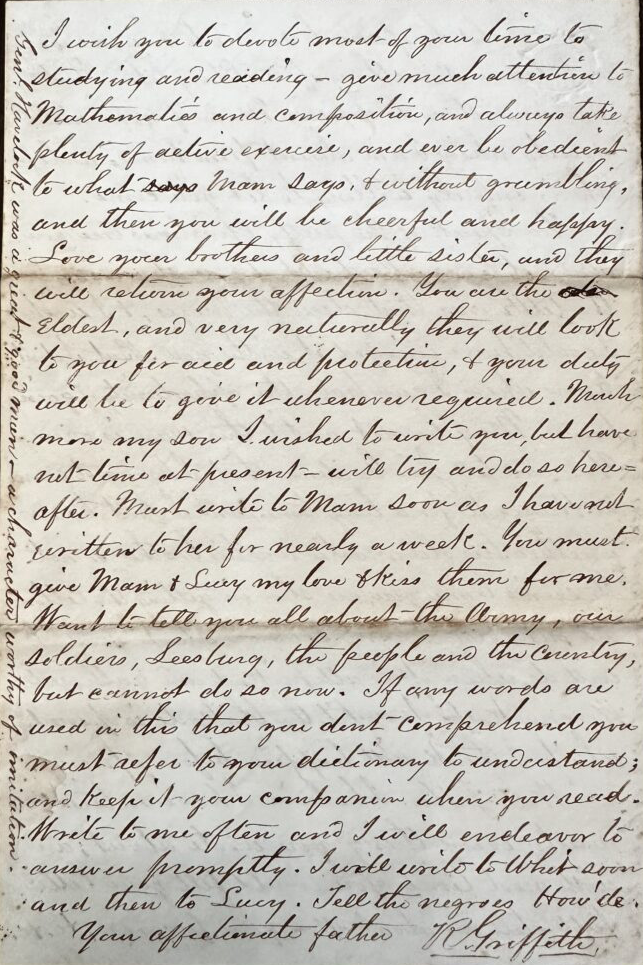 I wish you to devote most of your time to
studying and reading – give much attention to
Mathematics and composition, and always take
plenty of active exercise, and ever be obedient
to what says Mam says, & without grumbling,
and then you will be cheerful and happy.
Love your brothers and little sister, and they
will return your affection. You are the
Eldest, and very naturally they will look
to you for aid and protection, & your duty
will be to give it whenever required. Much
more my son I wished to write you, but have
not time at present – will try and do so here=
after. Must write to Mam soon as I have not
written to her for nearly a week. You must
give Mam & Lucy my love & kiss them for me.
Want to tell you all about the Army, our
soldiers, Leesburg, the people and the Country,
but cannot do so now. If any words are
used in this that you dont comprehend you
must refer to your dictionary to understand;
and keep it your companion when you read.
Write to me often and I will endeavor to
answer promptly. I will write to Whit soon
and then to Lucy. Tell the negroes How'de.
Your affectionate father R. Griffith.
Genl. Havelock was a great & good man – a character worthy of imitation.